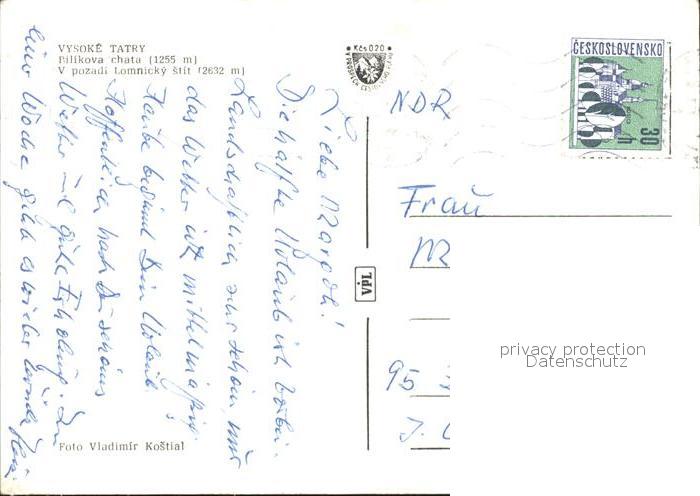 VYSOKÉ TATRY
Bílikova chata (1255 m)
V pozadí Lomnický štít (2632 m)
Kčs 0,20
ČESKOSLOVENSKO
30 h
Liebe Margot!
Die Hälfte Urlaub ist vorbei.
Landschaftlich sehr schön, nur
das Wetter ist mittelmäßig.
Heute beginnt Dein Urlaub.
Hoffentlich hast Du schönes
Wetter und gute Erholung. In
einer Woche gibt es wieder
NDR
Frau
M
95
J.
VpL
Foto Vladimír Koštial
privacy protection
Datenschutz